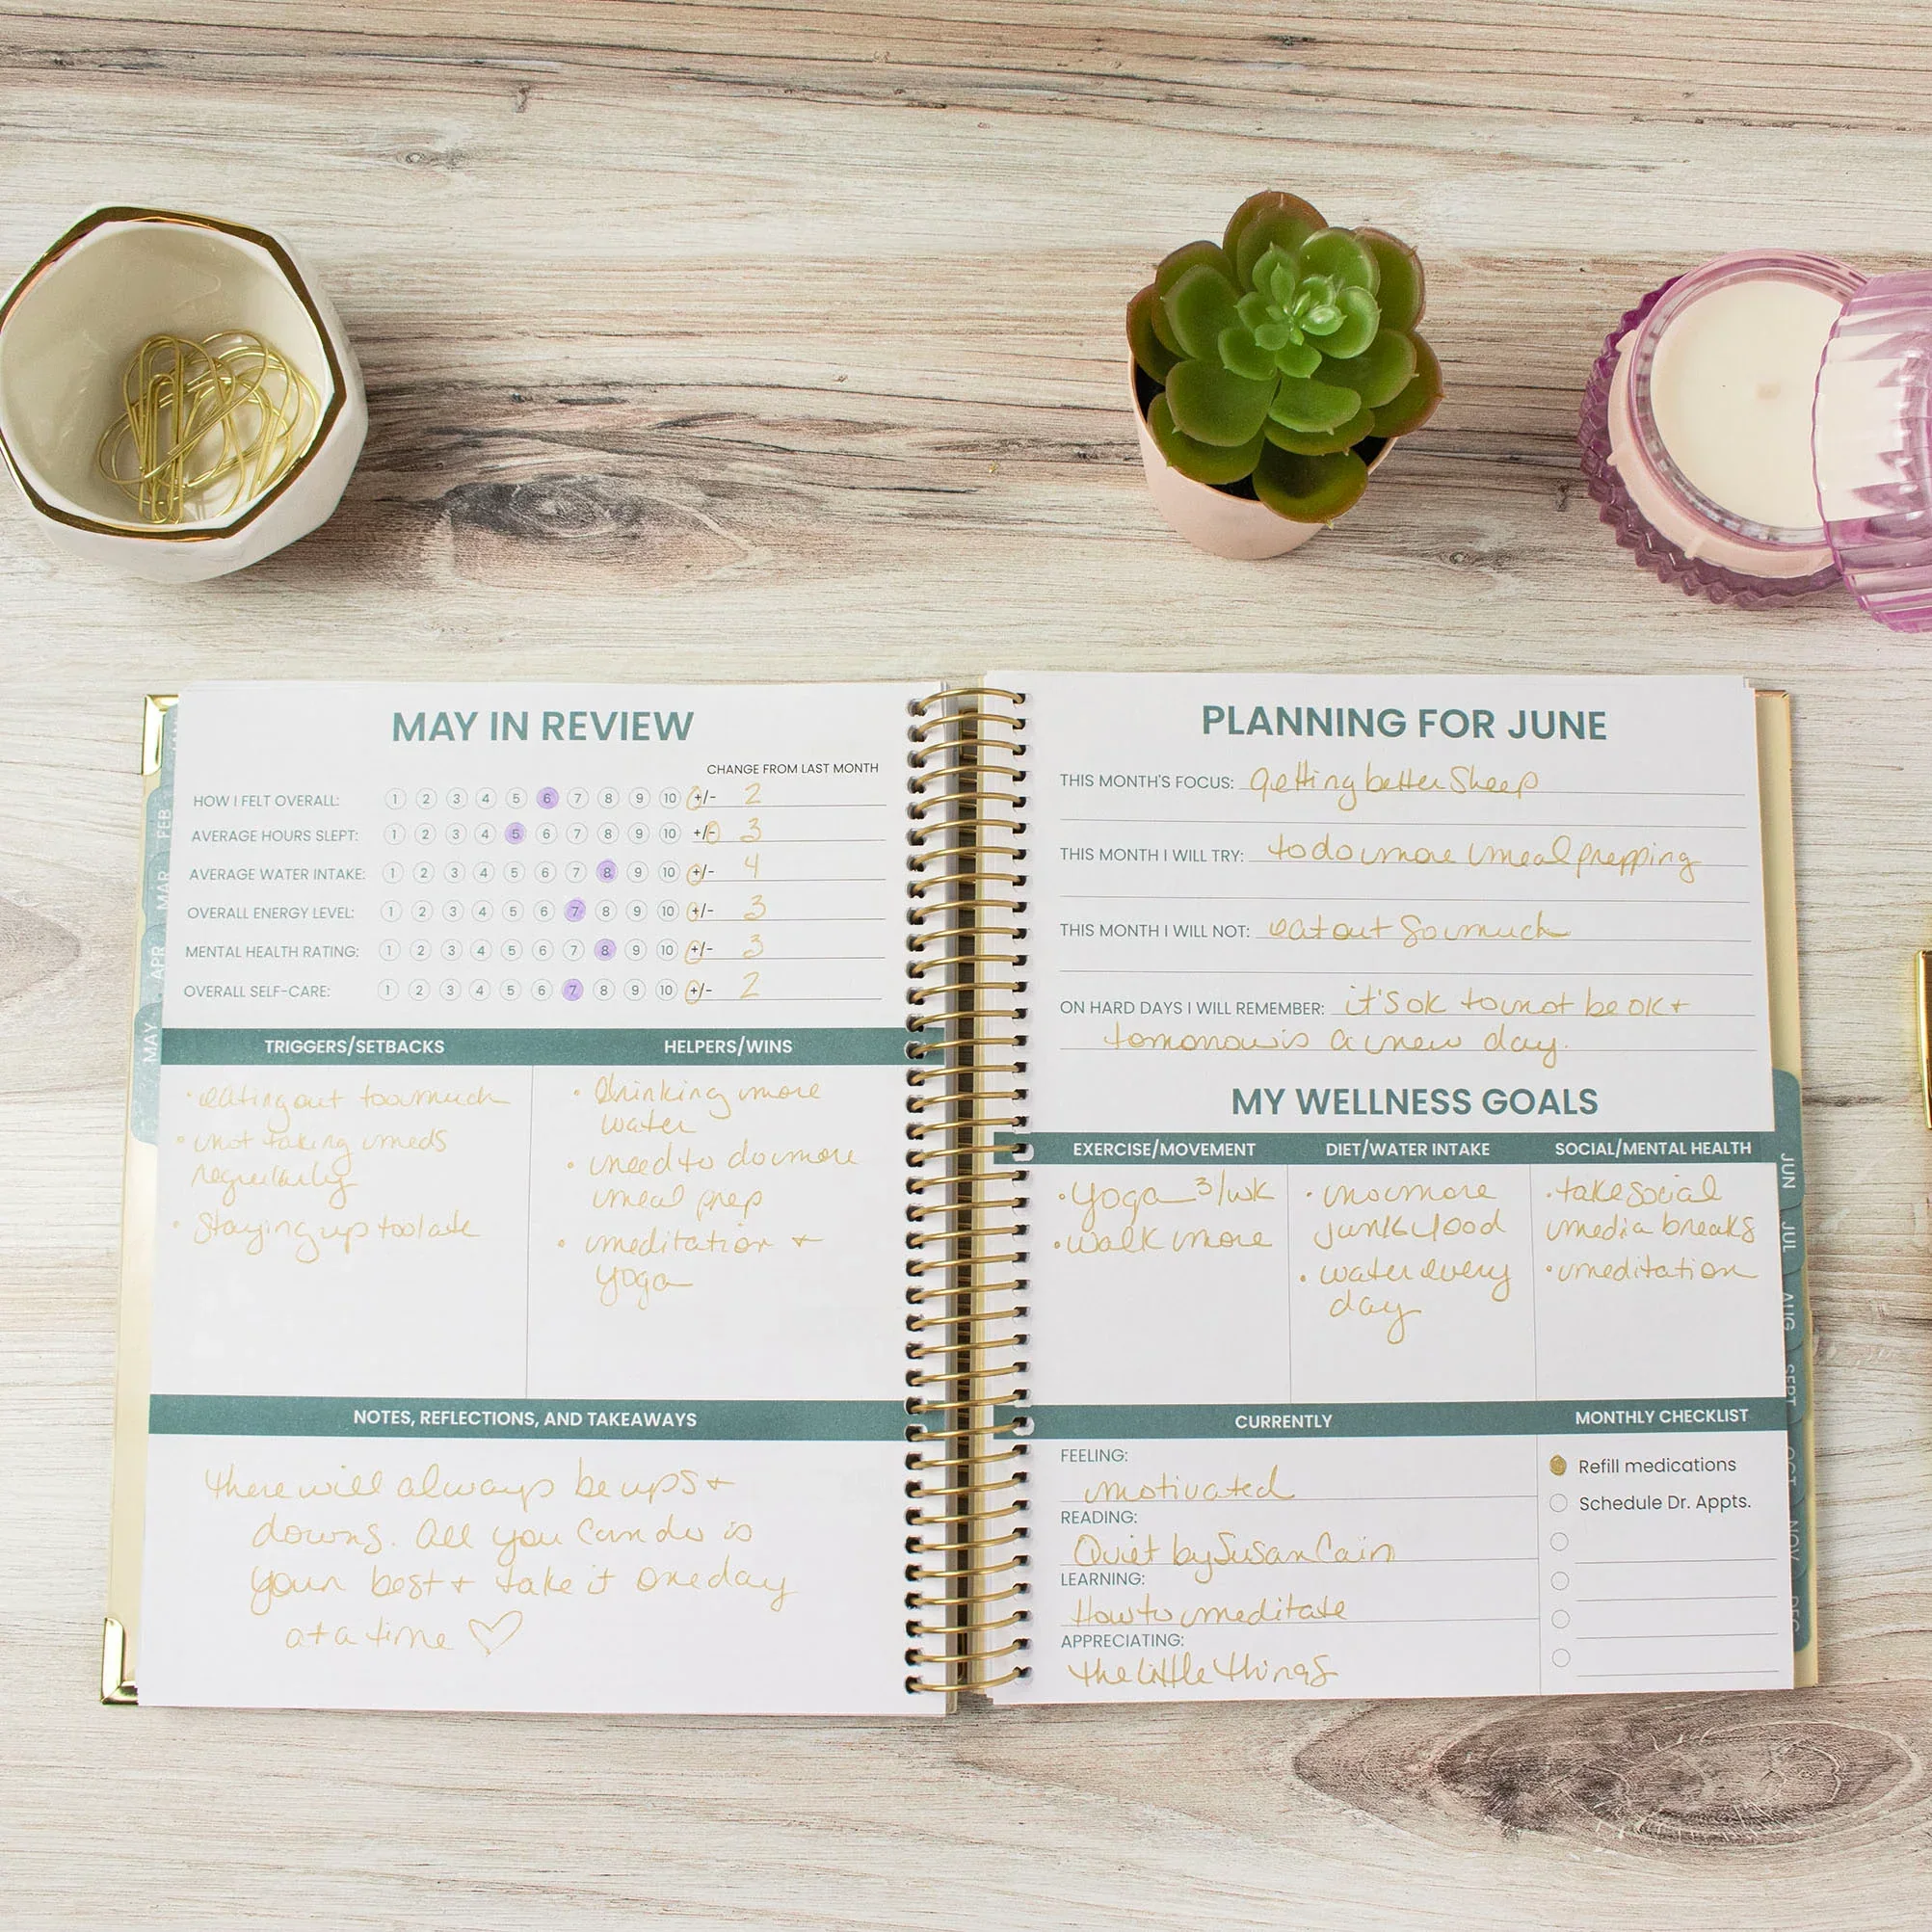 MAY IN REVIEW
CHANGE FROM LAST MONTH
HOW I FELT OVERALL: 1 2 3 4 5 6 7 8 9 10 +/- 2
AVERAGE HOURS SLEPT: 1 2 3 4 5 6 7 8 9 10 +/- 3
AVERAGE WATER INTAKE: 1 2 3 4 5 6 7 8 9 10 +/- 4
OVERALL ENERGY LEVEL: 1 2 3 4 5 6 7 8 9 10 +/- 3
MENTAL HEALTH RATING: 1 2 3 4 5 6 7 8 9 10 +/- 3
OVERALL SELF-CARE: 1 2 3 4 5 6 7 8 9 10 +/- 2
TRIGGERS/SETBACKS
• eating out too much
• not taking meds
regularly
• Staying up too late
HELPERS/WINS
• drinking more
water
• need to do more
meal prep
• meditation +
yoga
NOTES, REFLECTIONS, AND TAKEAWAYS
there will always be ups +
downs. All you can do is
your best + take it one day
at a time ♡
FEB
MAR
APR
MAY
PLANNING FOR JUNE
THIS MONTH'S FOCUS: getting better sleep
THIS MONTH I WILL TRY: to do more meal prepping
THIS MONTH I WILL NOT: eat out so much
ON HARD DAYS I WILL REMEMBER: it's ok to not be ok +
tomorrow is a new day.
MY WELLNESS GOALS
EXERCISE/MOVEMENT
• yoga 3/wk
• walk more
DIET/WATER INTAKE
• no more
junk food
• water every
day
SOCIAL/MENTAL HEALTH
• take social
media breaks
• meditation
CURRENTLY
FEELING:
motivated
READING:
Quiet by Susan Cain
LEARNING:
How to meditate
APPRECIATING:
the little things
MONTHLY CHECKLIST
Refill medications
Schedule Dr. Appts.
JUN
JUL
AUG
SEPT
OCT
NOV
DEC